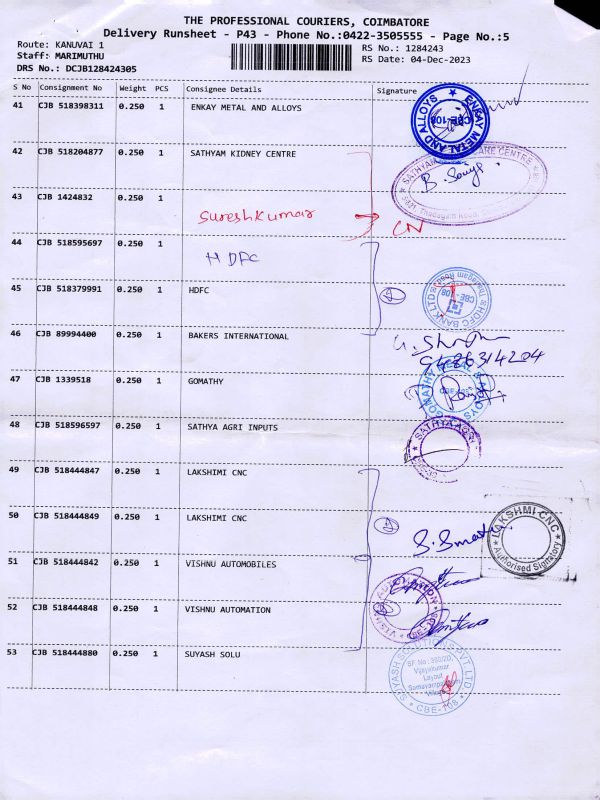 THE PROFESSIONAL COURIERS, COIMBATORE
Delivery Runsheet - P43 - Phone No.:0422-3505555 - Page No.:5
Route: KANUVAI 1 RS No.: 1284243
Staff: MARIMUTHU RS Date: 04-Dec-2023
DRS No.: DCJB128424305
S No Consignment No Weight PCS Consignee Details Signature
41 CJB 518398311 0.250 1 ENKAY METAL AND ALLOYS
ENKAY METAL AND ALLOYS
CBE-108
42 CJB 518204877 0.250 1 SATHYAM KIDNEY CENTRE
SATHYAM CARE CENTRE
43 CJB 1424832 0.250 1
Sureshkumar
44 CJB 518595697 0.250 1
HDFC
45 CJB 518379991 0.250 1 HDFC
HDFC BANK LTD
CBE-108
46 CJB 89994400 0.250 1 BAKERS INTERNATIONAL
9486314204
47 CJB 1339518 0.250 1 GOMATHY
GOMATHY METAL & ALLOYS
48 CJB 518596597 0.250 1 SATHYA AGRI INPUTS
SATHYA AGRI
49 CJB 518444847 0.250 1 LAKSHIMI CNC
50 CJB 518444849 0.250 1 LAKSHIMI CNC
LAKSHMI CNC
Authorised Signatory
51 CJB 518444842 0.250 1 VISHNU AUTOMOBILES
52 CJB 518444848 0.250 1 VISHNU AUTOMATION
VISHNU AUTOMATION
CBE-108
53 CJB 518444880 0.250 1 SUYASH SOLU
SUYASH PVT LTD
Layout
CBE-108